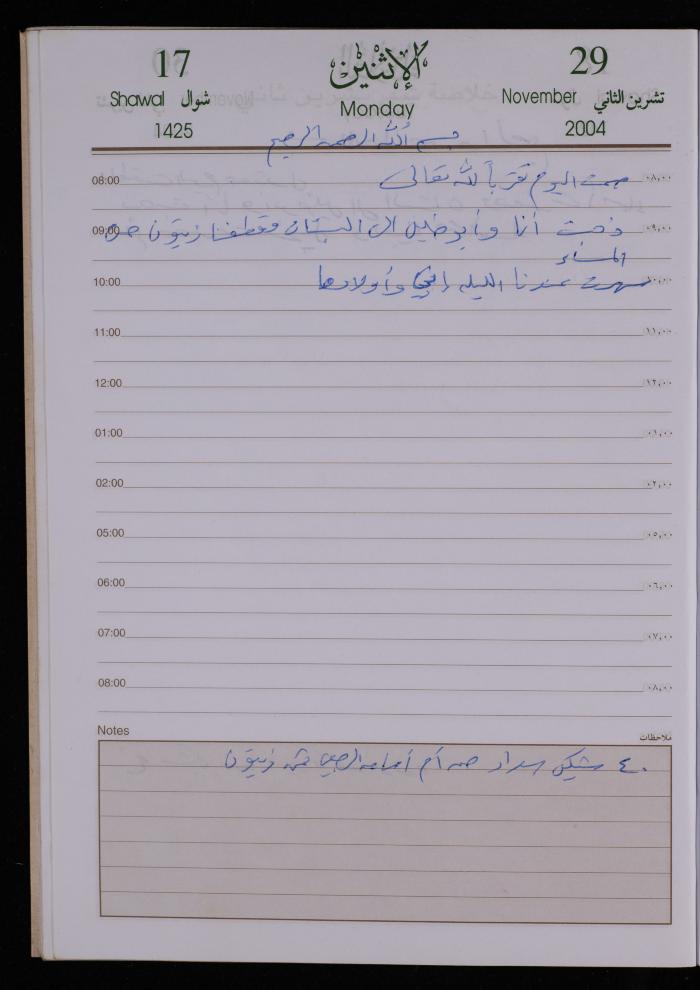 17 الإثنين 29
Shawal شوال Monday November تشرين الثاني
1425 2004
بسم الله الرحمن الرحيم
08:00 صمت اليوم تقرباً لله تعالى ٠٨,٠٠
09:00 ذهبت أنا وأبو خليل الى البستان فقطفنا زيتون حتى ٠٩,٠٠
المساء
10:00 سهرت عندنا الليلة وأولادها ١٠,٠٠
11:00 ١١,٠٠
12:00 ١٢,٠٠
01:00 ٠١,٠٠
02:00 ٠٢,٠٠
05:00 ٠٥,٠٠
06:00 ٠٦,٠٠
07:00 ٠٧,٠٠
08:00 ٠٨,٠٠
Notes ملاحظات
٤٠ شيكل سداد من أم أسامة ثمن زيتون